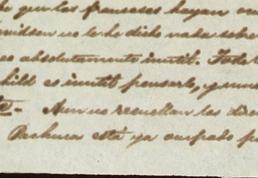 que los franceses hayan
no le he dicho nada sobre
es absolutamente inutil. Todo
es inutil pensarlo, y
Aun no resuellan los
Pachuca está ya ocupado p